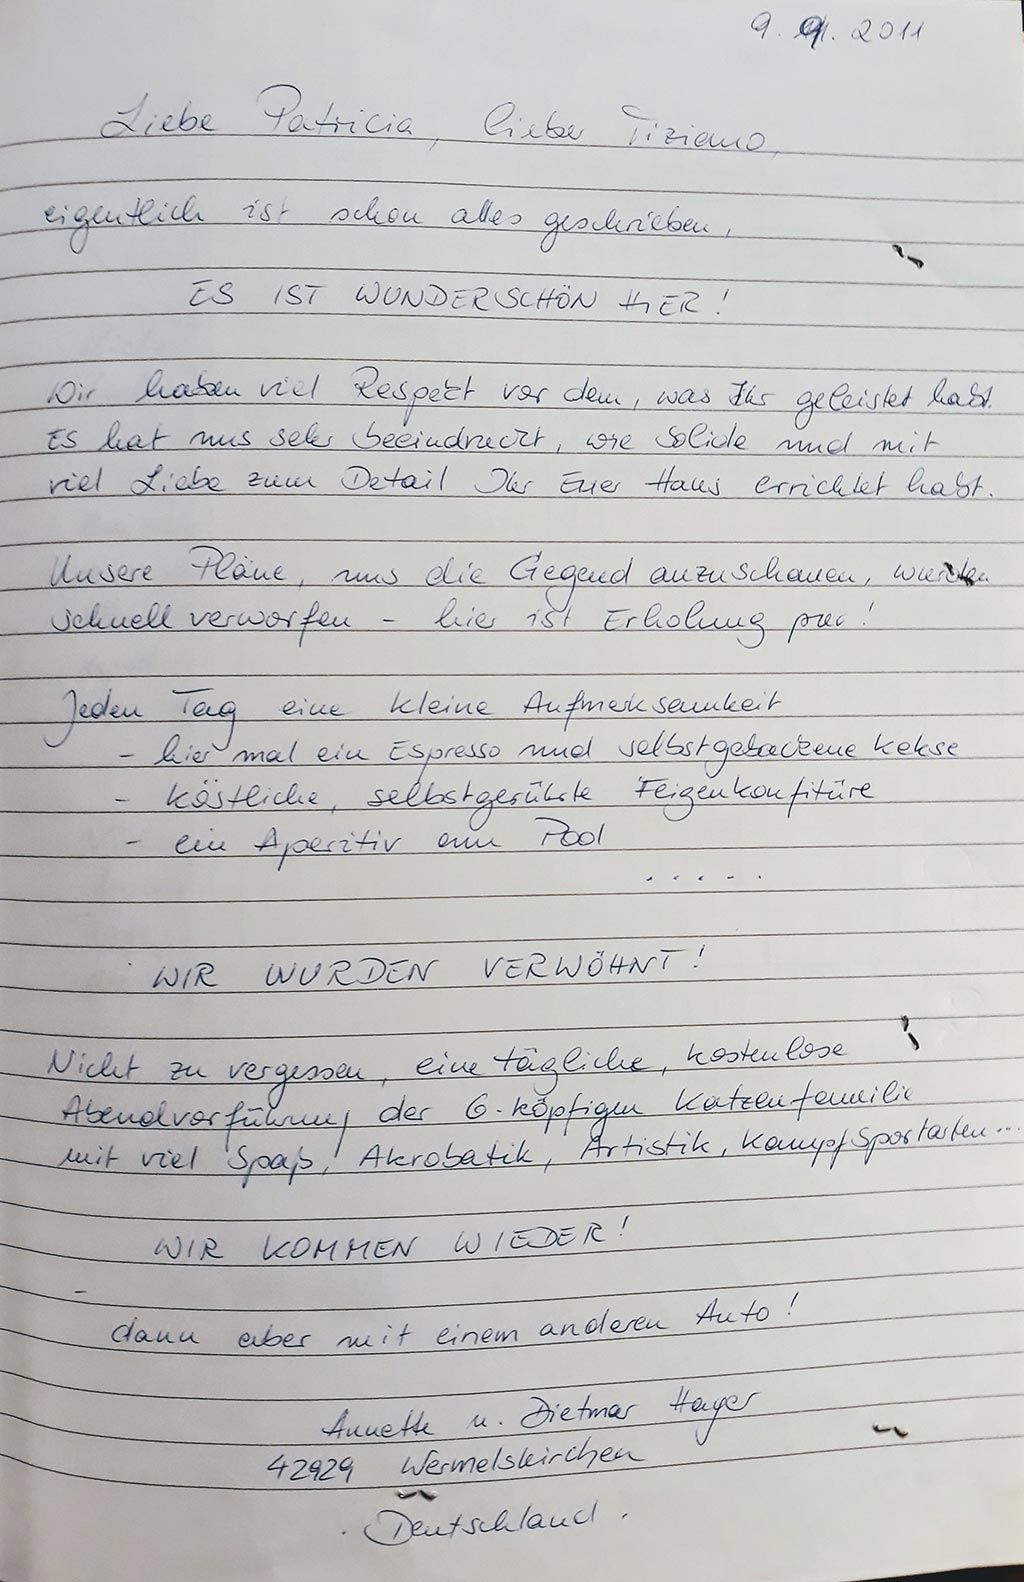 9. 9. 2011
Liebe Patricia, lieber Tiziano,
eigentlich ist schon alles geschrieben,
ES IST WUNDERSCHÖN HIER!
Wir haben viel Respekt vor dem, was Ihr geleistet habt.
Es hat uns sehr beeindruckt, wie solide und mit
viel Liebe zum Detail Ihr Euer Haus errichtet habt.
Unsere Pläne, uns die Gegend anzuschauen, wurden
schnell verworfen - hier ist Erholung pur!
Jeden Tag eine kleine Aufmerksamkeit
- hier mal ein Espresso und selbstgebackene Kekse
- köstliche, selbstgerührte Feigenkonfitüre
- ein Aperitiv am Pool
.....
WIR WURDEN VERWÖHNT!
Nicht zu vergessen, eine tägliche, kostenlose
Abendvorführung der 6-köpfigen Katzenfamilie
mit viel Spaß, Akrobatik, Artistik, Kampfsportarten...
WIR KOMMEN WIEDER!
dann aber mit einem anderen Auto!
Annette u. Dietmar Hager
42929 Wermelskirchen
. Deutschland .